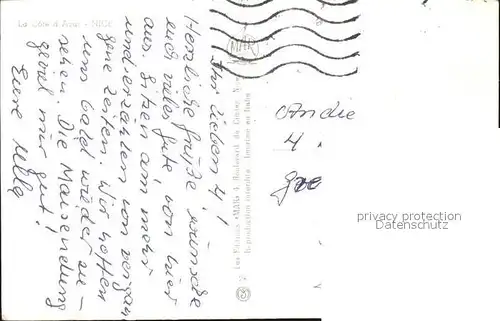 La Côte d'Azur - NICE
Ihr lieben 4!
Herzliche Grüße, wünsche
euch vieles gute, von hier
aus. Sitzen am meer
und erzählen von vergan
gene Zeiten. Wir hoffen
uns bald wieder zu -
sehen. Die
gefiel mir gut!
Eure
Les Editions «MAR» 1, Boulevard du
Reproduction interdite - Imprimé en Italie
An die
4
privacy protection
Datenschutz